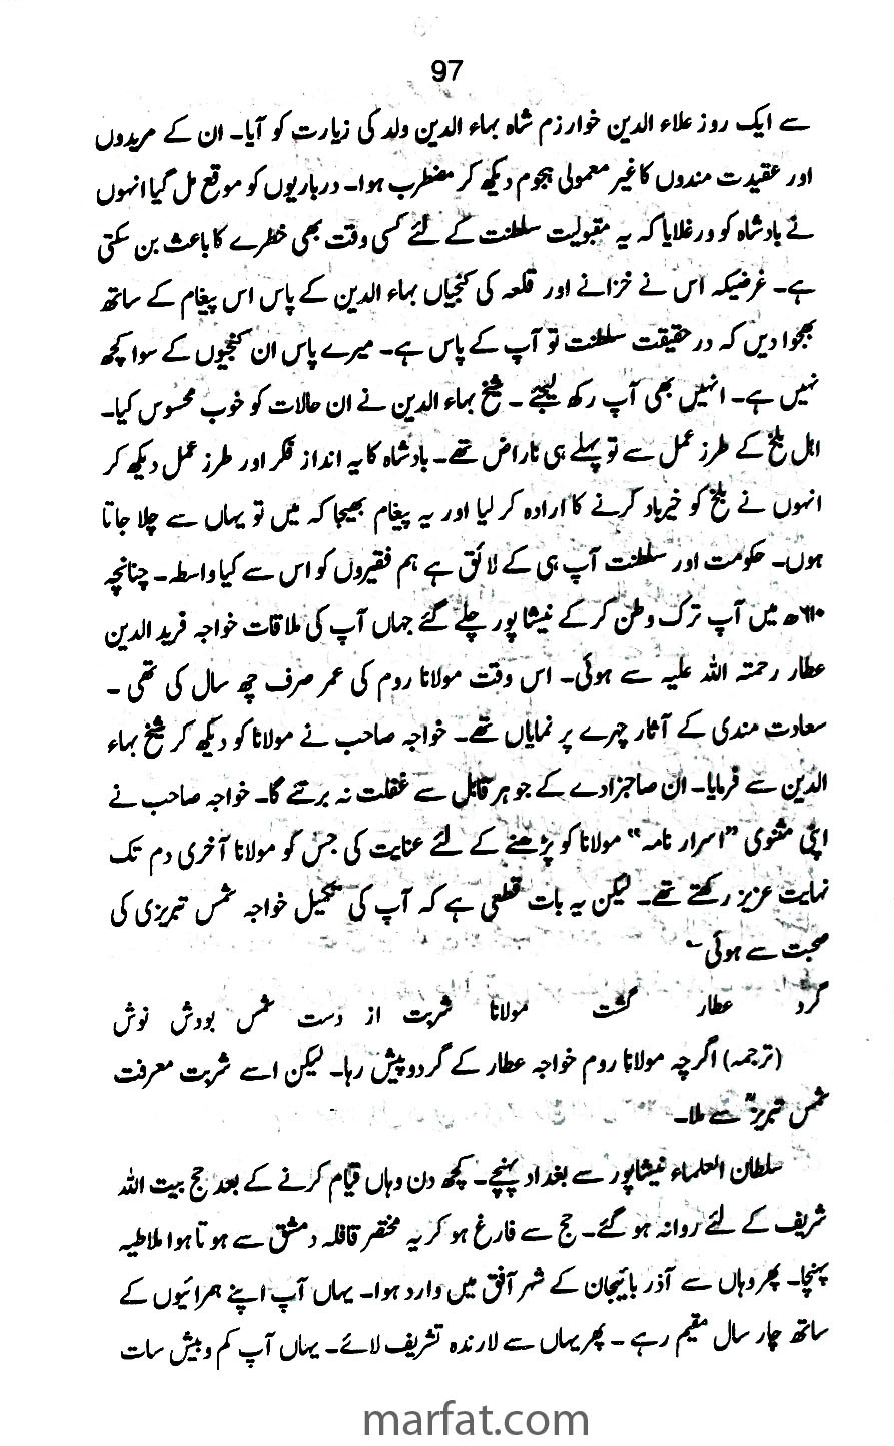 97
سے ایک روز علاء الدین خوارزم شاہ بہاء الدین ولد کی زیارت کو آیا۔ ان کے مریدوں
اور عقیدت مندوں کا غیر معمولی ہجوم دیکھ کر مضطرب ہوا۔ درباریوں کو موقع مل گیا انہوں
نے بادشاہ کو ورغلایا کہ یہ مقبولیت سلطنت کے لئے کسی وقت بھی خطرے کا باعث بن سکتی
ہے۔ غرضیکہ اس نے خزانے اور قلعہ کی کنجیاں بہاء الدین کے پاس اس پیغام کے ساتھ
بھجوا دیں کہ درحقیقت سلطنت تو آپ کے پاس ہے۔ میرے پاس ان کنجیوں کے سوا کچھ
نہیں ہے۔ انہیں بھی آپ رکھ لیجئے۔ شیخ بہاء الدین نے ان حالات کو خوب محسوس کیا۔
اہل بلخ کے طرز عمل سے تو پہلے ہی ناراض تھے۔ بادشاہ کا یہ انداز فکر اور طرز عمل دیکھ کر
انہوں نے بلخ کو خیرباد کرنے کا ارادہ کر لیا اور یہ پیغام بھیجا کہ میں تو یہاں سے چلا جاتا
ہوں۔ حکومت اور سلطنت آپ ہی کے لائق ہے ہم فقیروں کو اس سے کیا واسطہ۔ چنانچہ
۶۱۰ھ میں آپ ترک وطن کر کے نیشاپور چلے گئے جہاں آپ کی ملاقات خواجہ فرید الدین
عطار رحمتہ اللہ علیہ سے ہوئی۔ اس وقت مولانا روم کی عمر صرف چھ سال کی تھی۔
سعادت مندی کے آثار چہرے پر نمایاں تھے۔ خواجہ صاحب نے مولانا کو دیکھ کر شیخ بہاء
الدین سے فرمایا۔ ان صاحبزادے کے جوہر قابل سے غفلت نہ برتئے گا۔ خواجہ صاحب نے
اپنی مثنوی "اسرار نامہ" مولانا کو پڑھنے کے لئے عنایت کی جس کو مولانا آخری دم تک
نہایت عزیز رکھتے تھے۔ لیکن یہ بات قطعی ہے کہ آپ کی تکمیل خواجہ شمس تبریزی کی
صحبت سے ہوئی؎
گرد عطار گشت مولانا شربت از دست شمس بودش نوش
(ترجمہ) اگرچہ مولانا روم خواجہ عطار کے گردوپیش رہا۔ لیکن اسے شربت معرفت
شمس تبریزؒ سے ملا۔
سلطان العلماء نیشاپور سے بغداد پہنچے۔ کچھ دن وہاں قیام کرنے کے بعد حج بیت اللہ
شریف کے لئے روانہ ہو گئے۔ حج سے فارغ ہو کر یہ مختصر قافلہ دمشق سے ہوتا ہوا ملاطیہ
پہنچا۔ پھر وہاں سے آذر بائیجان کے شہر آفق میں وارد ہوا۔ یہاں آپ اپنے ہمرائیوں کے
ساتھ چار سال مقیم رہے۔ پھر یہاں سے لارندہ تشریف لائے۔ یہاں آپ کم و بیش سات
marfat.com